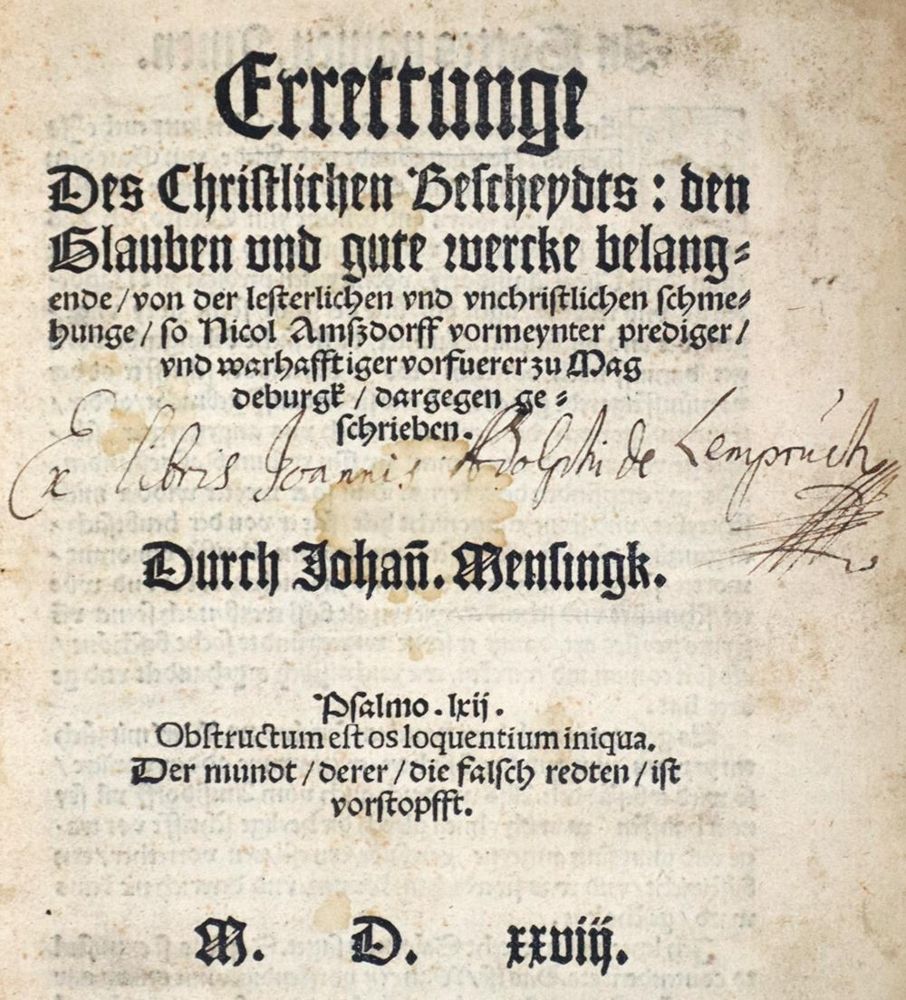 Errettunge
Des Christlichen Bescheydts : den
Glauben vnd gute wercke belang⸗
ende / von der lesterlichen vnd vnchristlichen schme⸗
hunge / so Nicol Amßdorff vormeynter prediger /
vnd warhafftiger vorfuerer zu Mag
deburgk / dargegen ge⸗
schrieben.
Ex libris Joannis Adolphi de Lempruch
Durch Johan̄. Mensingk.
Psalmo . lxij .
Obstructum est os loquentium iniqua.
Der mundt / derer / die falsch redten / ist
vorstopfft.
M. D. xxviij.